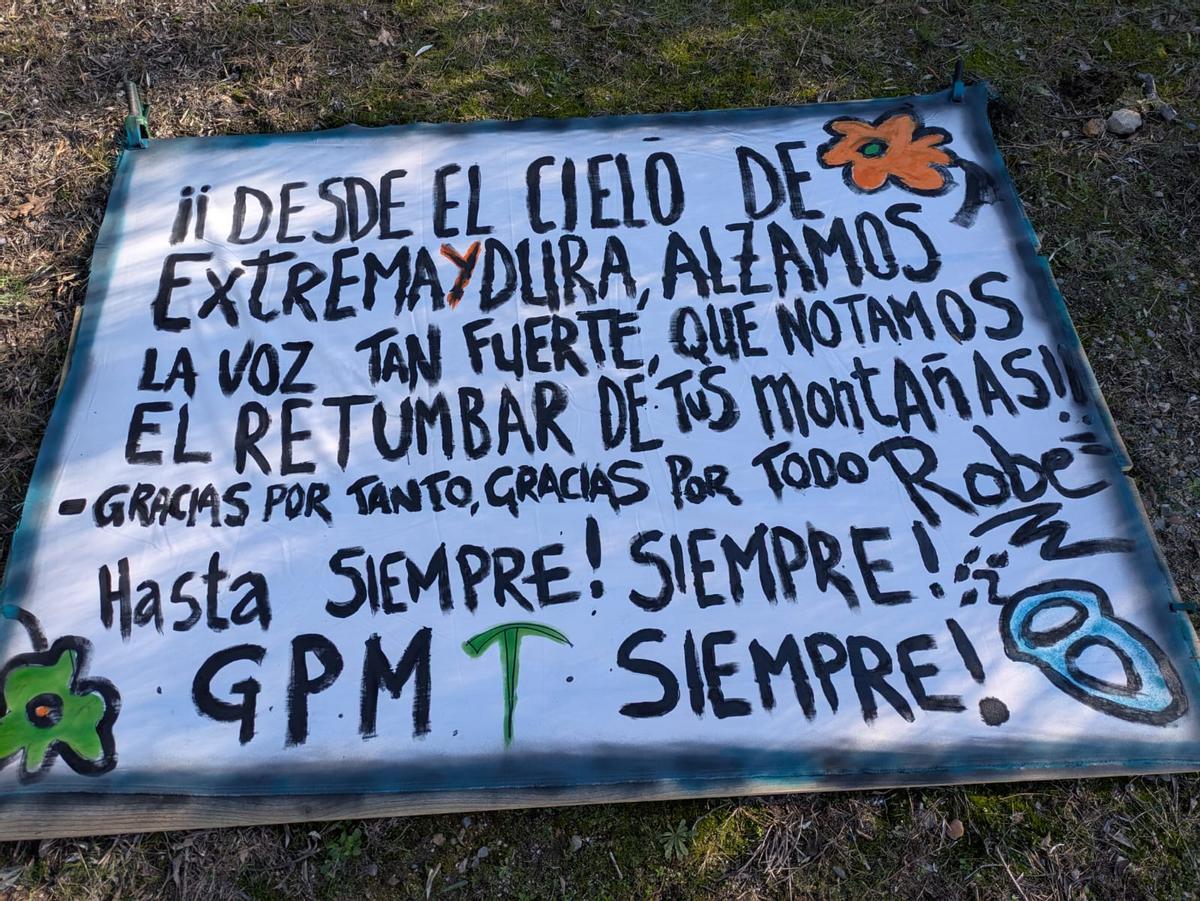 ¡¡DESDE EL CIELO DE
EXtREMAYDURA, ALZAMOS
LA VOZ TAN FUERTE, QUE NOTAMOS
EL RETUMBAR DE TUS MontAÑAS!!
- GRACIAS POR TANTO, GRACIAS POR TODO Robe
Hasta SIEMPRE! SIEMPRE!
GPM T SIEMPRE!